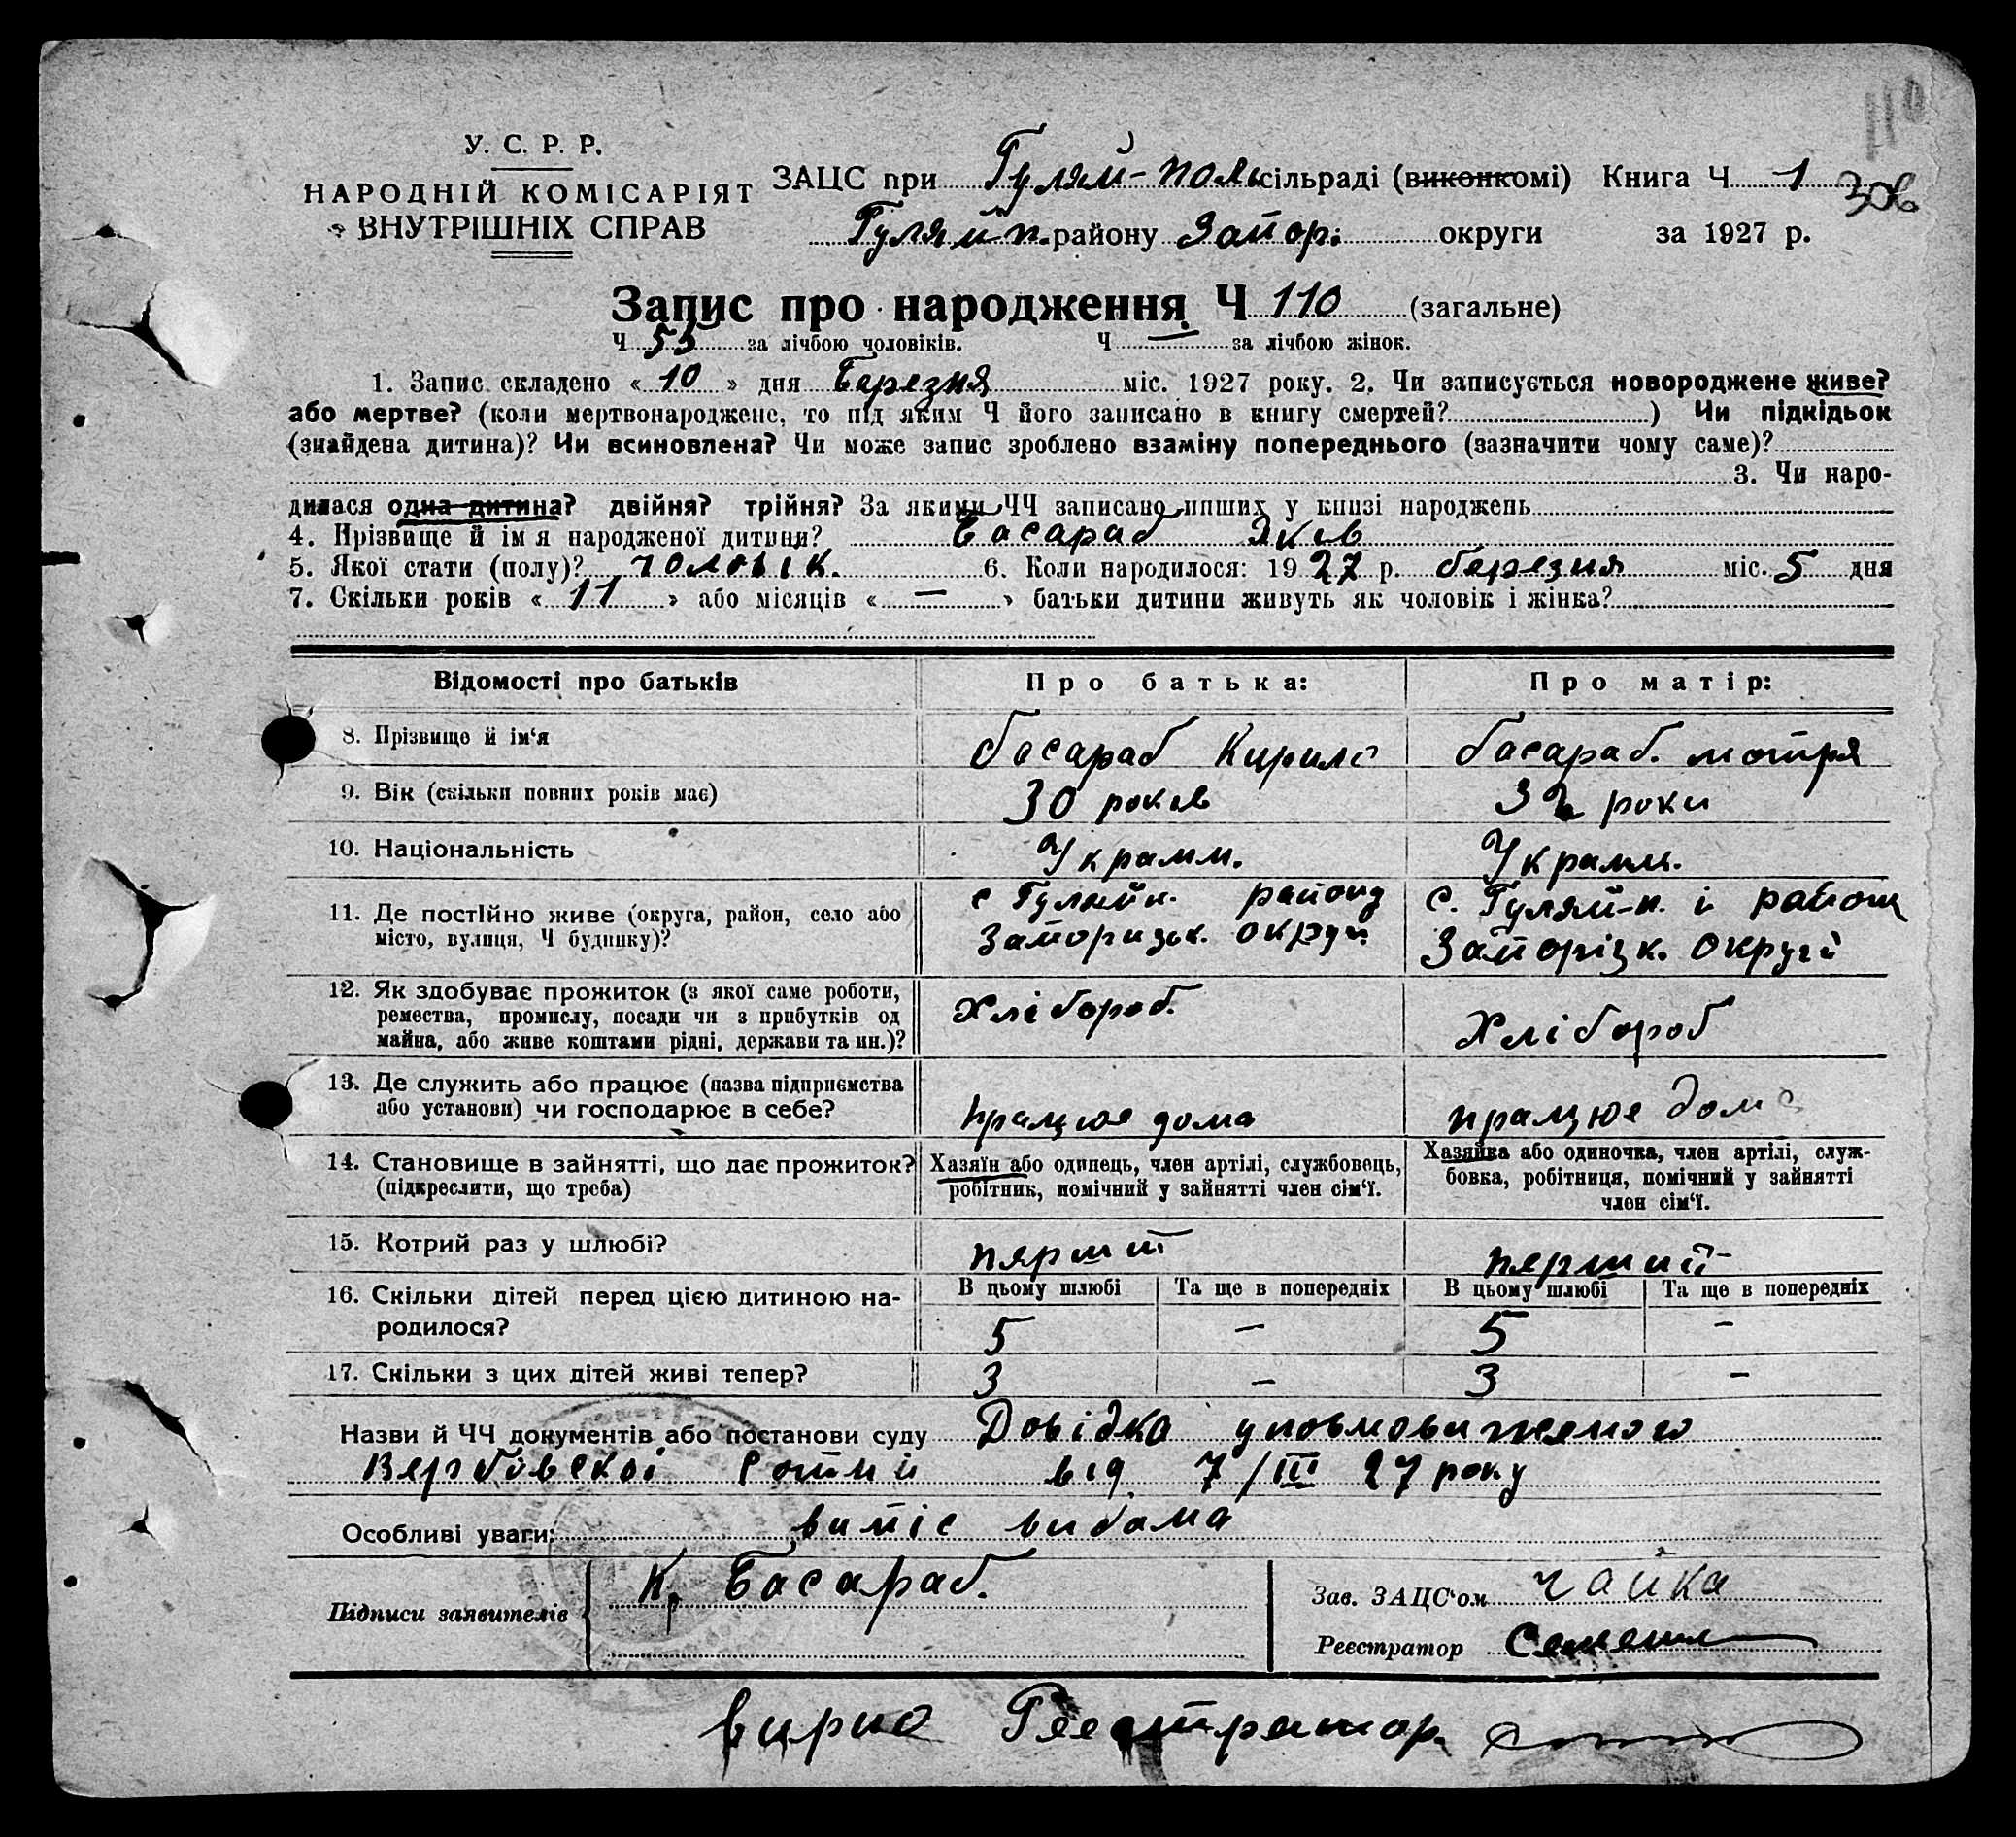 110
У. С. Р. Р.
НАРОДНІЙ КОМІСАРІЯТ
ВНУТРІШНІХ СПРАВ
ЗАЦС при Гуляй-Поль сільраді (виконкомі) Книга Ч 1
306
Гуляй-п. району Запор: округи за 1927 р.
Запис про народження Ч 110 (загальне)
Ч 55 за лічбою чоловіків. Ч — за лічбою жінок.
1. Запис складено « 10 » дня Березня міс. 1927 року. 2. Чи записується новороджене живе?
або мертве? (коли мертвонароджене, то під яким Ч його записано в книгу смертей? ) Чи підкідьок
(знайдена дитина)? Чи всиновлена? Чи може запис зроблено взаміну попереднього (зазначити чому саме)?
3. Чи наро-
дилася одна дитина? двійня? трійня? За якими ЧЧ записано инших у книзі народжень
4. Прізвище й ім'я народженої дитини? Басараб Яків
5. Якої стати (полу)? чоловік. 6. Коли народилося: 1927 р. березня міс. 5 дня
7. Скільки років « 11 » або місяців « — » батьки дитини живуть як чоловік і жінка?
Відомості про батьків Про батька: Про матір:
8. Прізвище й ім'я Басараб Кирило Басараб. Мотря
9. Вік (скільки повних років має) 30 років 32 роки
10. Національність Украинн. Украинн.
11. Де постійно живе (округа, район, село або с Гуляйп. району С. Гуляй-п. і району
місто, вулиця, Ч будинку)? Запоризьк. округи Запорізк. округи
12. Як здобуває прожиток (з якої саме роботи, Хлібороб. Хлібороб
ремества, промислу, посади чи з прибутків од
майна, або живе коштами рідні, держави та ин.)?
13. Де служить або працює (назва підприємства
або установи) чи господарює в себе? працює дома працює дома
14. Становище в зайнятті, що дає прожиток? Хазяїн або одинець, член артілі, службовець, Хазяйка або одиночка, член артілі, служ-
(підкреслити, що треба) робітник, помічний у зайнятті член сім'ї. бовка, робітниця, помічний у зайнятті
член сім'ї.
15. Котрий раз у шлюбі? перший перший
16. Скільки дітей перед цією дитиною на- В цьому шлюбі Та ще в попередніх В цьому шлюбі Та ще в попередніх
родилося? 5 — 5 —
17. Скільки з цих дітей живі тепер? 3 — 3 —
Назви й ЧЧ документів або постанови суду Довідка
Вербовскої Сотни від 7/III 27 року
Особливі уваги: випіс видана
Підписи заявителів К. Басараб.
Зав. ЗАЦС'ом Чайка
Реєстратор
вирно Реестратор.